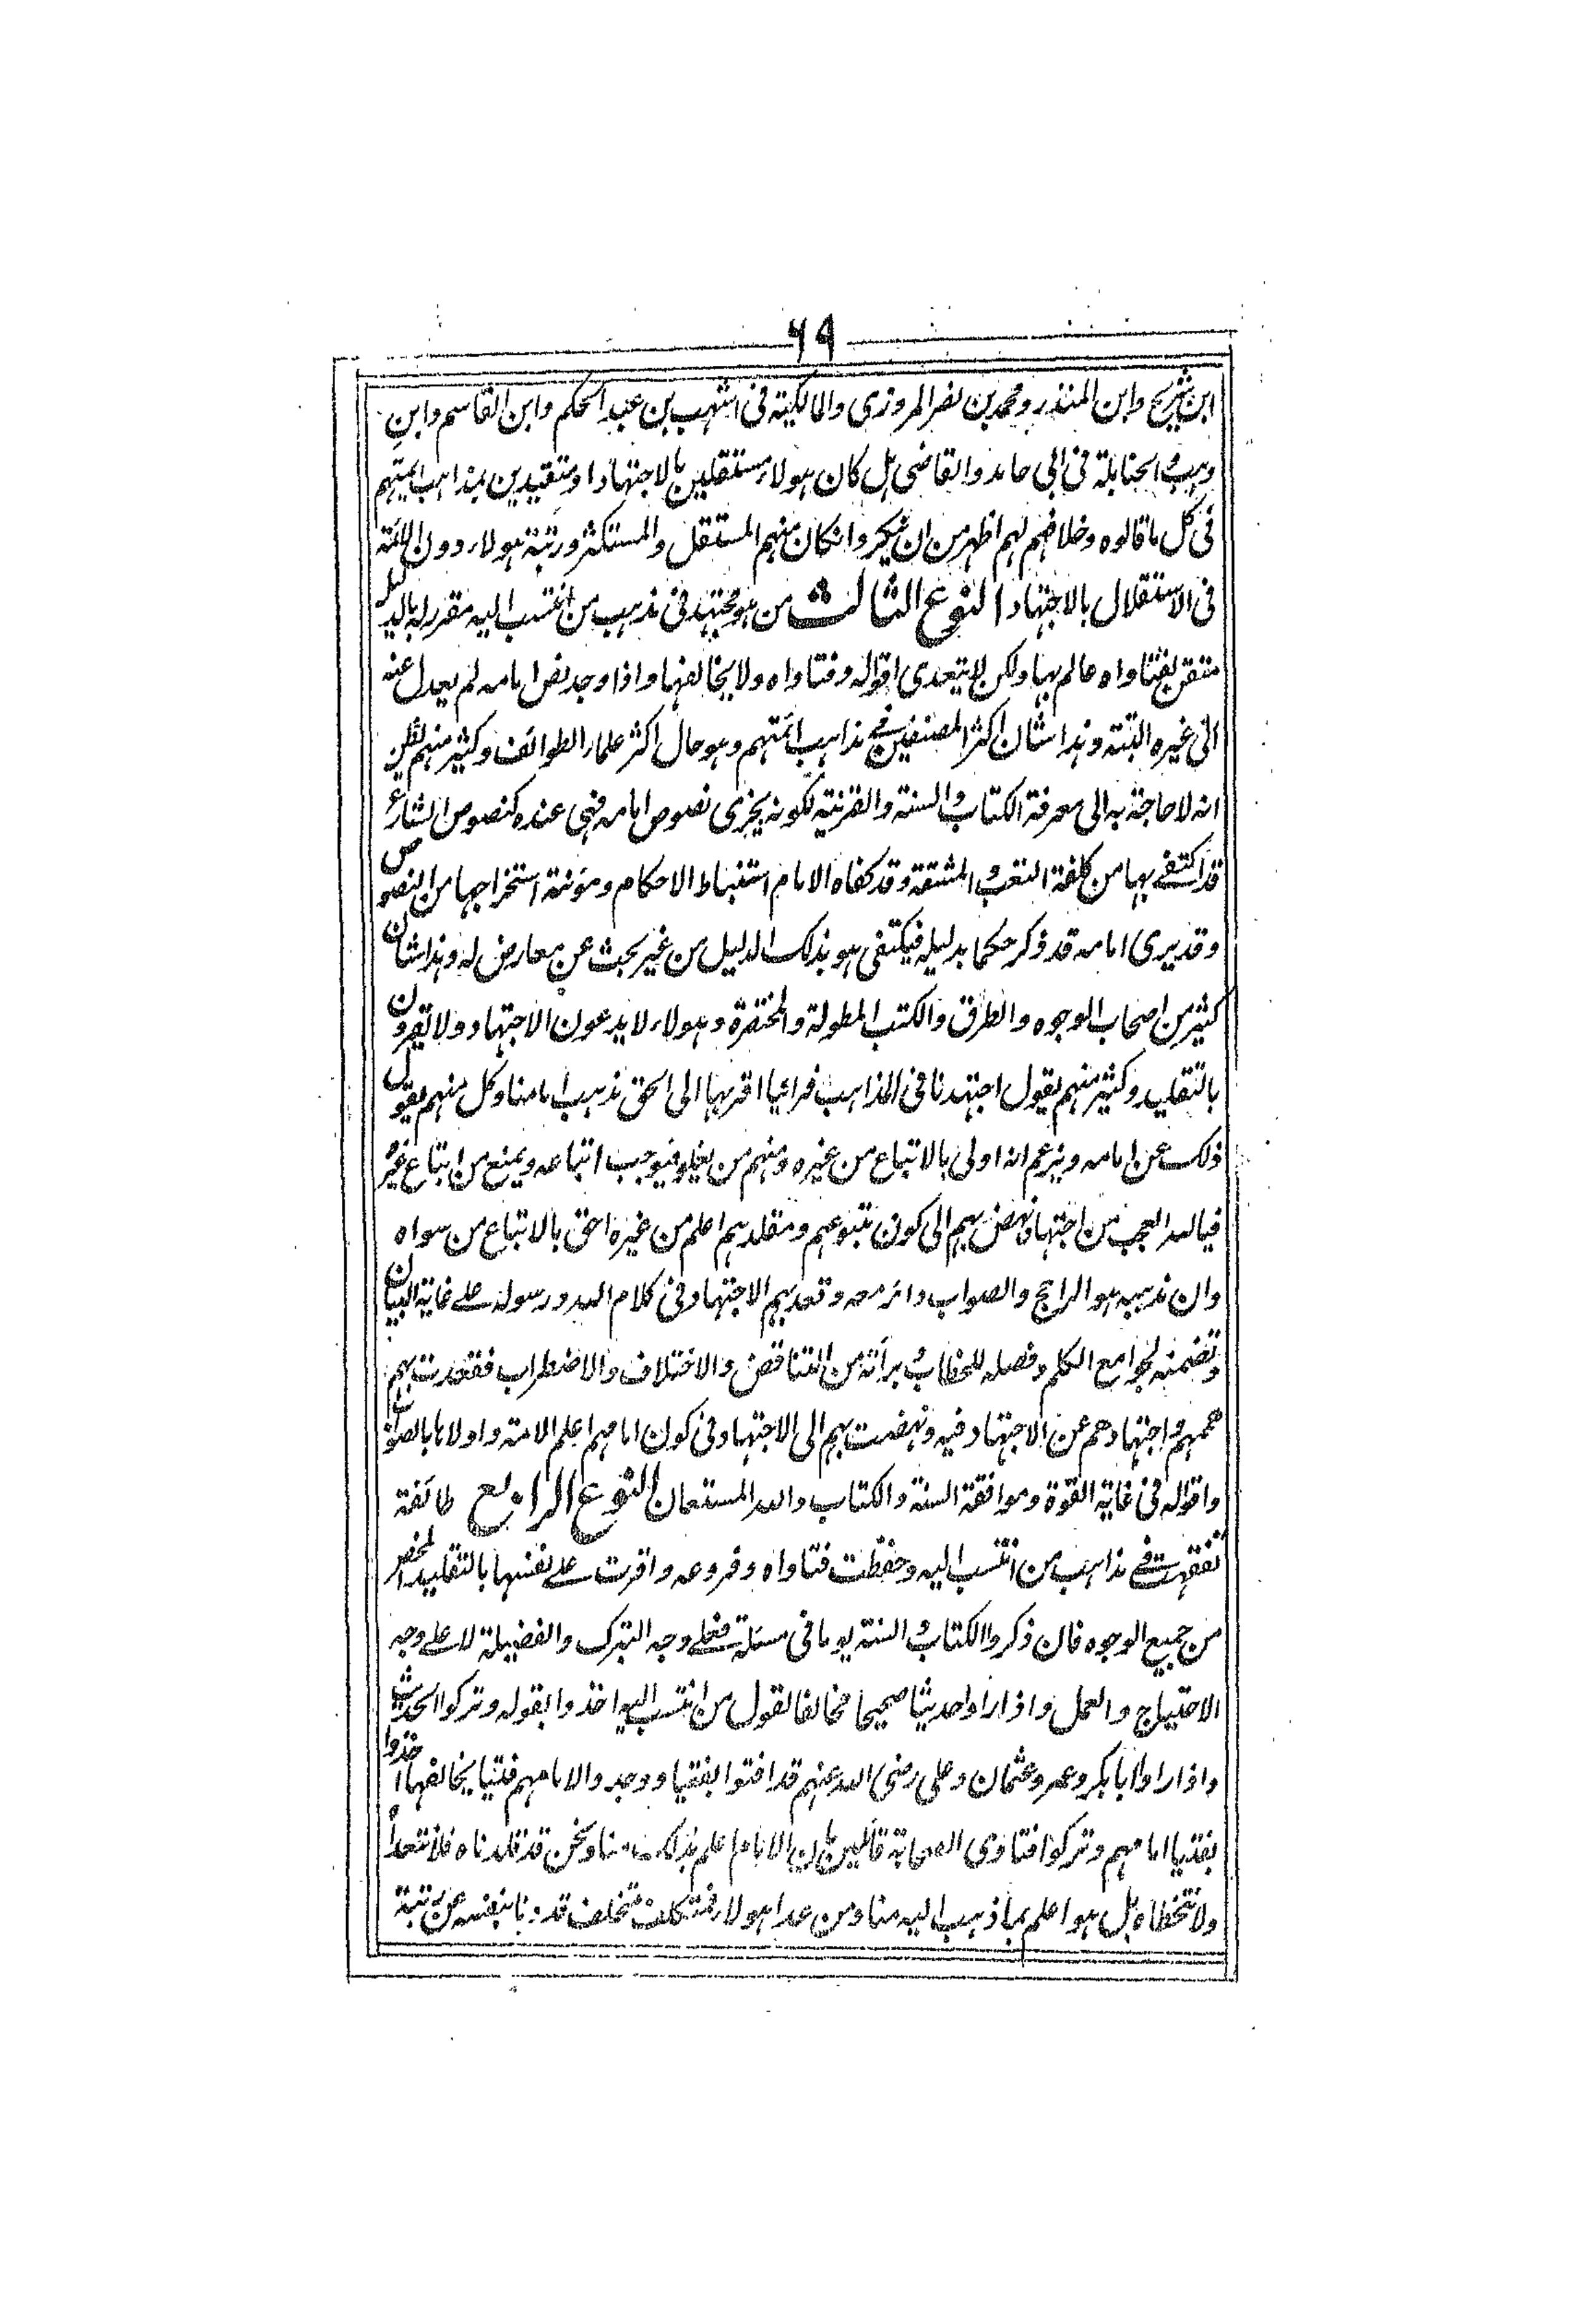 ٦٩
ابن شريح وابن المنذر ومحمد بن نصر المروزى والمالكية فى اشهب بن عبد الحكم وابن القاسم وابن
وهب والحنابلة فى ابى حامد والقاضى هل كان هولاء مستقلين بالاجتهاد او متقيدين بمذاهب ائمتهم
فى كل ما قالوه وخلافهم لهم اظهر من ان ينكر وانكان منهم المستقل والمستكثر ورتبة هولاء دون الائمة
فى الاستقلال بالاجتهاد النوع الثالث من هو مجتهد فى مذهب من انتسب اليه مقرر له بالدليل
متقن بفتاواه عالم بها ولكن لا يتعدى اقواله وفتاواه ولا يخالفها واذا وجد نص امامه لم يعدل عنه
الى غيره البتة وهذا شان اكثر المصنفين فى مذاهب ائمتهم وهو حال اكثر علماء الطوائف وكثير منهم يظن
انه لا حاجة به الى معرفة الكتاب والسنة والقرنية لكونه يجزى نصوص امامه فهى عنده كنصوص الشارع
قد اكتفى بها من كلفة التعب والمشقة وقد كفاه الامام استنباط الاحكام ومؤنة استخراجها من النصوص
وقد يرى امامه قد ذكر حكما بدليله فيكتفى هو بذلك الدليل من غير بحث عن معارض له وهذا شان
كثير من اصحاب الوجوه والطرق والكتب المطولة والمختصرة وهولاء لا يدعون الاجتهاد ولا يقرون
بالتقليد وكثير منهم يقول اجتهدنا فى المذاهب فراينا اقربها الى الحق مذهب امامنا وكل منهم يقول
ذلك عن امامه ويزعم انه اولى بالاتباع من غيره ومنهم من يغلو فيوجب اتباعه ويمنع من اتباع غيره
فيا لله العجب من اجتهاد نهض بهم الى كون متبوعهم ومقلدهم اعلم من غيره احق بالاتباع من سواه
وان مذهبه هو الراجح والصواب دائر معه وقعد بهم الاجتهاد فى كلام الله ورسوله على غاية البيان
وتضمنه لجوامع الكلم وفصله للخطاب وبرأته من التناقض والاختلاف والاضطراب فقعدت بهم
هممهم واجتهادهم عن الاجتهاد فيه ونهضت بهم الى الاجتهاد فى كون امامهم اعلم الامة واولاها بالصواب
واقواله فى غاية القوة وموافقة السنة والكتاب والله المستعان النوع الرابع طائفة
تفقهت فى مذاهب من انتسب اليه وحفظت فتاواه وفروعه واقرت على نفسها بالتقليد المحض
من جميع الوجوه فان ذكروا الكتاب والسنة يوما فى مسئلة فعلى وجه التبرك والفضيلة لا على وجه
الاحتياج والعمل واذا راوا حديثا صحيحا مخالفا لقول من انتسب اليه اخذوا بقوله وتركوا الحديث
واذا راوا ابا بكر وعمر وعثمان وعلى رضى الله عنهم قد افتوا بفتيا ووجدوا لامامهم فتيا يخالفها اخذوا
بفتيا امامهم وتركوا فتاوى الصحابة قائلين بان الامام اعلم بذلك منا ونحن قد قلدناه فلا نتعداه
ولا نتخطاه بل هو اعلم بما ذهب اليه منا ومن عدا هولاء فمتكلف متخلف قد دنا بنفسه عن رتبة